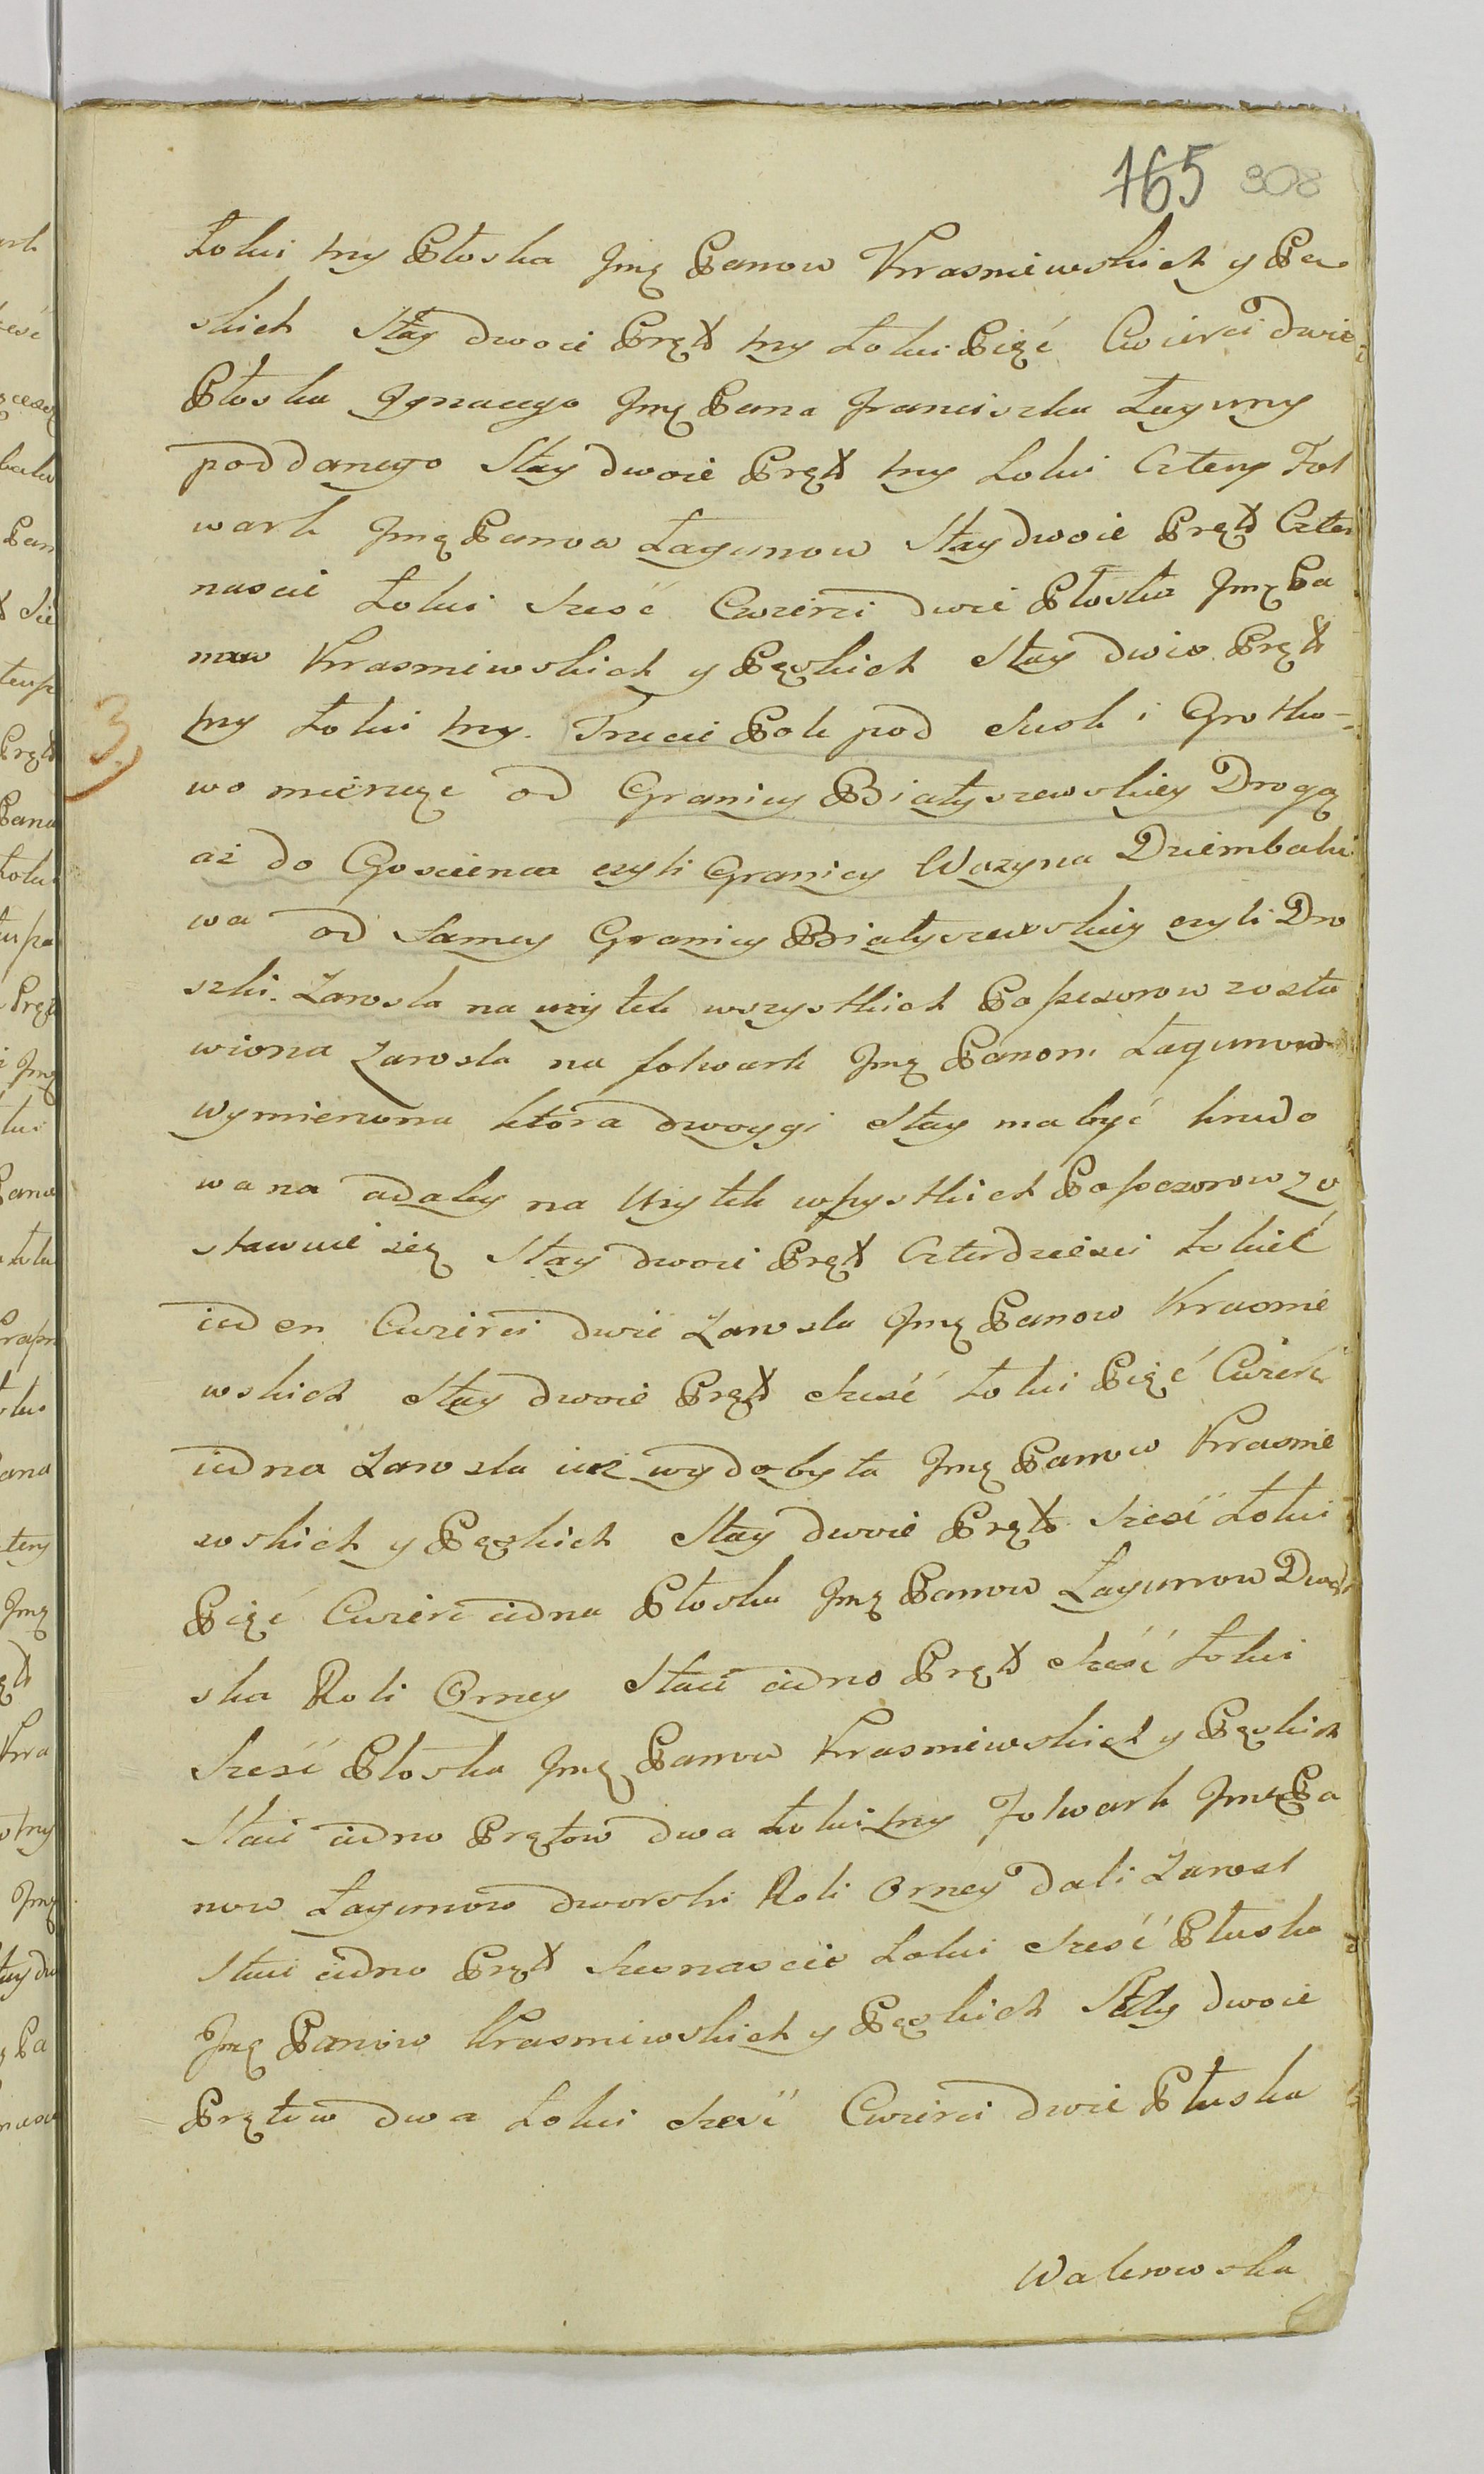 165 308
Łokci trzy Płoska Jmę Panow Krasniewskich y Pę
skich Stay dwoie Pręt trzy Łokci Pięć Cwierci dwie
Płoska Jgnacego Jmę Pana Franciszka Łaguny
poddanego Stay dwoie Pręt trzy Łokci Cztery Fol
wark Jmę Panow Łagunow Stay dwoie Pręt Czter
nascie Łokci szesć Cwierci dwie Płoska Jmę Pa
now Krasniewskich y Pęskich Stay dwie Pręt
trzy Łokci trzy. Trzecie Pole pod Suski Grotko-
3
wo mierząc od Granicy Białyszewskiey Drogą
aż do Goscienca czyli Granicy Wozyna Dziembako
wa od Samey Granicy Białyszewskiey czyli Dro
szki. Zarosla na użytek wszystkich Possesorow zosta
wiona Zarosla na folwark Jmę Panom Łagunow
wymierzona ktora dwoygi Stay ma być kredo
wana a daley na Użytek wszystkich Possesorow zo
stawuie się Stay dwoie Pręt Czterdziesci Łokieć
ieden Cwierci dwie Zarosla Jmę Panow Krasnie
wskich Stay dwoie Pręt szesć Łokci Pięć Cwierć
iedna Zarosla iuż wydobyta Jmę Panow Krasnie
wskich y Pęskich Stay dwoie Pręt szesć Łokci
Pięć Cwierć iedna Płoska Jmę Panow Łagunow Dwor
ska Roli Orney Staie iedno Pręt szesć Łokci
szesć Płoska Jmę Panow Krasniewskich y Pęskich
Staie iedno Prętow dwa Łokci trzy Folwark Jmę Pa
now Łagunow dworski Roli Orney dali Zarosl
Staie iedno Pręt szesnascie Łokci szesć Płuska
Jmę Panow Krasniewskich y Pęskich Stay dwoie
Prętow dwa Łokci szesć Cwierci dwie Płuska
Walerowska